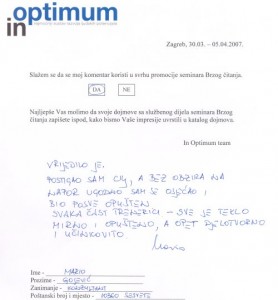 in optimum
Zagreb, 30.03. - 05.04.2007.
Slažem se da se moj komentar koristi u svrhu promocije seminara Brzog čitanja.
DA NE
Najljepše Vas molimo da svoje dojmove sa službenog dijela seminara Brzog
čitanja zapišete ispod, kako bismo Vaše impresije uvrstili u katalog dojmova.
In Optimum team
VRIJEDILO JE.
POSTIGAO SAM CILJ, A BEZ OBZIRA NA
NAPOR UGODNO SAM SE OSJEĆAO I
BIO POSVE OPUŠTEN
SVAKA ČAST TRENERICI - SVE JE TEKLO
MIRNO I OPUŠTENO, A OPET DJELOTVORNO
I UČINKOVITO.
Ime - MARIO
Prezime -
Zanimanje -
Poštanski broj i mjesto -